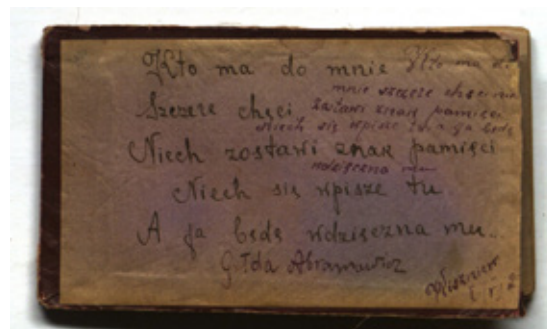 Kto ma do mnie
Szczere chęci
Niech zostawi znak pamięci
Niech się wpisze tu
A ja będę wdzięczna mu...
Gołda Abramowicz
Kto ma do
mnie szczere chęci niech
zostawi znak pamięci
Niech się wpisze tu a ja będę
wdzięczna mu